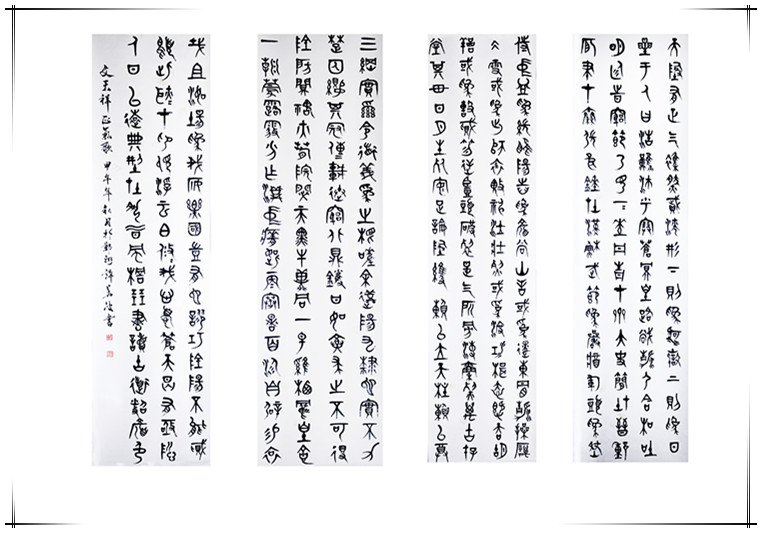 天地有正氣雜然賦流形下則為河嶽上則為日
星于人曰浩然沛乎塞蒼冥皇路當清夷含和吐
明庭時窮節乃見一一垂丹青在齊太史簡在晉董
狐筆在秦張良椎在漢蘇武節為嚴將軍頭為嵇
侍中血為張睢陽齒為顏常山舌或為遼東帽清操厲
冰雪或為出師表鬼神泣壯烈或為渡江楫慷慨吞胡
羯或為擊賊笏逆豎頭破裂是氣所磅礴凜烈萬古存
當其貫日月生死安足論地維賴以立天柱賴以尊
三綱實係命道義為之根嗟余遘陽九隸也實不力
楚囚纓其冠傳車送窮北鼎鑊甘如飴求之不可得
陰房闃鬼火春院閟天黑牛驥同一皂雞棲鳳凰食
一朝蒙霧露分作溝中瘠如此再寒暑百沴自辟易哀
哉沮洳場為我安樂國豈有他繆巧陰陽不能賊
顧此耿耿在仰視浮雲白悠悠我心悲蒼天曷有極哲
人日已遠典型在夙昔風簷展書讀古道照顏色
文天祥正氣歌 甲午年秋月於 許 書